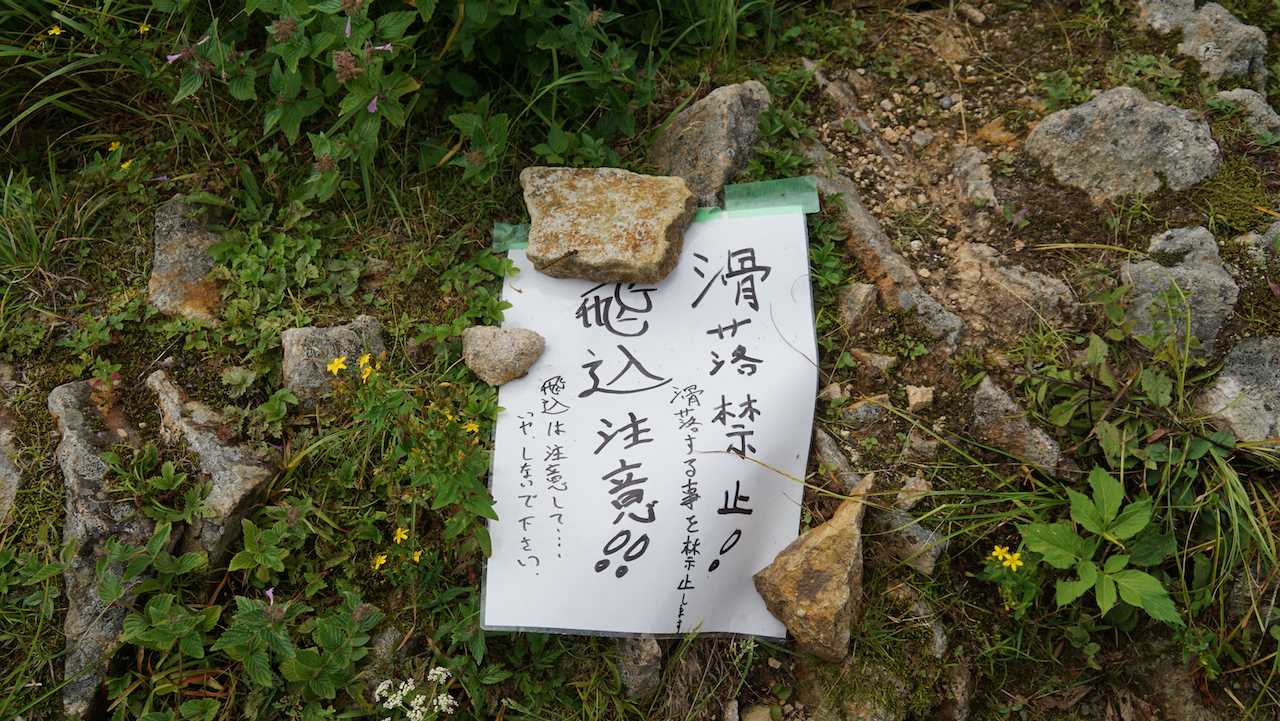 滑落禁止!
滑落する事を禁止します
飛込注意!!
飛込は注意して‥‥
いや、しないで下さい.